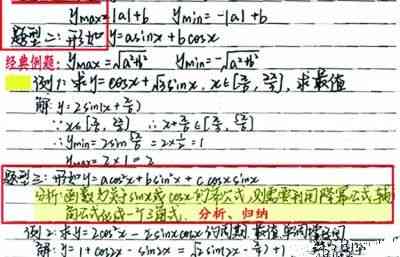 ymax=|a|+b ymin=-|a|+b
题型二:形如y=asinx+bcosx
经典例题: ymax=√a²+b² ymin=-√a²+b²
例1:求y=cosx+√3sinx, x∈[π/6, 2π/3], 求最值
解:y=2sin(x+π/6)
∵x∈[π/6, 2π/3] ∴x+π/6∈[π/3, 5π/6]
∴ymin=2sin5π/6=2×1/2=1
ymax=2×1=2
题型三:形如y=acos²x+bsin²x+c cosxsinx
分析:函数为关于sinx或cosx的齐次式,则需要利用降幂公式,辅助
角公式化成一个三角式. 分析、归纳
例2:求y=2cos²x-2sinxcosx的周期,最值,单调区间
解:y=1+cos2x-sin2x=